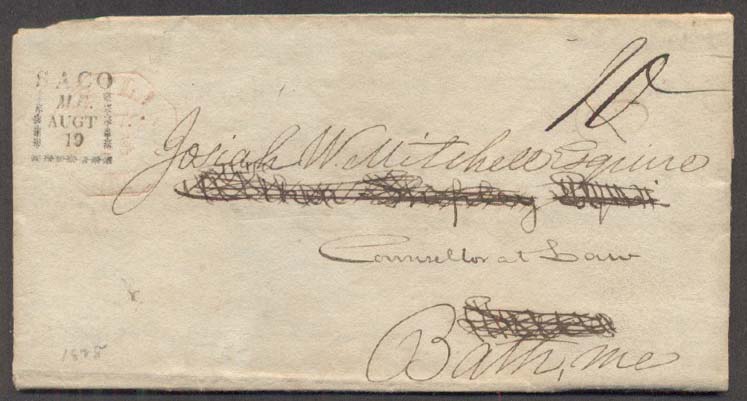 SACO
ME.
AUGT
19
10
Josiah W. Mitchell Esquire
Counsellor at Law
Bath, me
1828